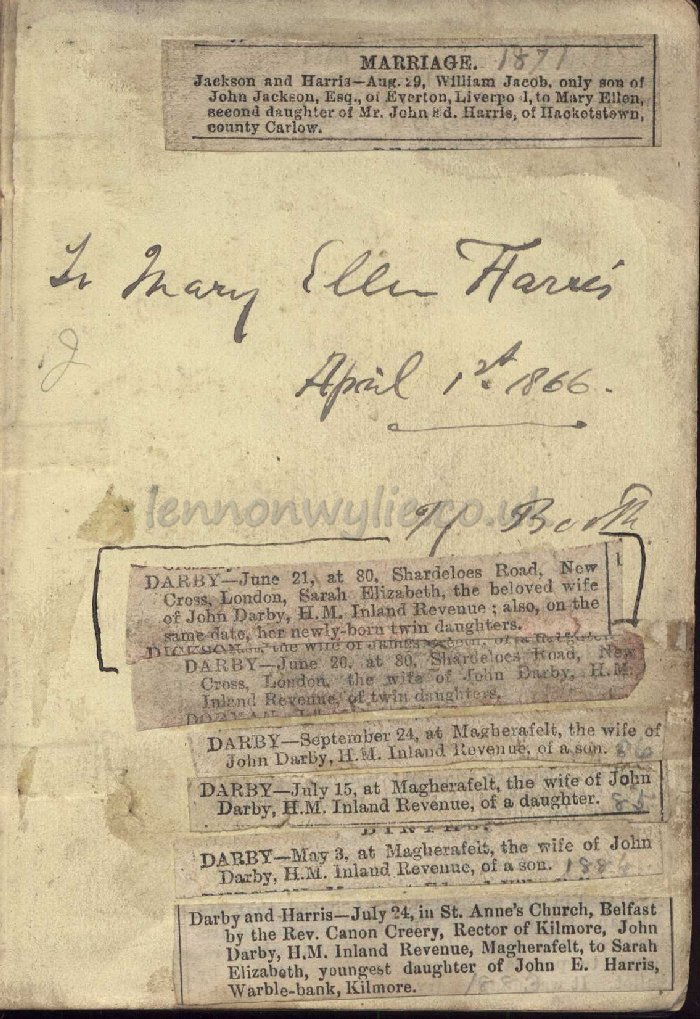 MARRIAGE. 1871
Jackson and Harris—Aug. 29, William Jacob, only son of
John Jackson, Esq., of Everton, Liverpo l, to Mary Ellen,
second daughter of Mr. John Ed. Harris, of Hacketstown,
county Carlow.
To Mary Ellen Harris
April 1st 1866.
lennonwylie.co.uk
Booth
DARBY—June 21, at 80, Shardeloes Road, New
Cross, London, Sarah Elizabeth, the beloved wife
of John Darby, H.M. Inland Revenue; also, on the
same date, her newly-born twin daughters.
DICKSON the wife of James
DARBY—June 20, at 80, Shardeloes Road, New
Cross, London, the wife of John Darby, H.M.
Inland Revenue, of twin daughters.
DARBY—September 24, at Magherafelt, the wife of
John Darby, H.M. Inland Revenue, of a son.
DARBY—July 15, at Magherafelt, the wife of John
Darby, H.M. Inland Revenue, of a daughter.
BIRTHS.
DARBY—May 3, at Magherafelt, the wife of John
Darby, H.M. Inland Revenue, of a son.
Darby and Harris—July 24, in St. Anne's Church, Belfast
by the Rev. Canon Creery, Rector of Kilmore, John
Darby, H.M. Inland Revenue, Magherafelt, to Sarah
Elizabeth, youngest daughter of John E. Harris,
Warble-bank, Kilmore.